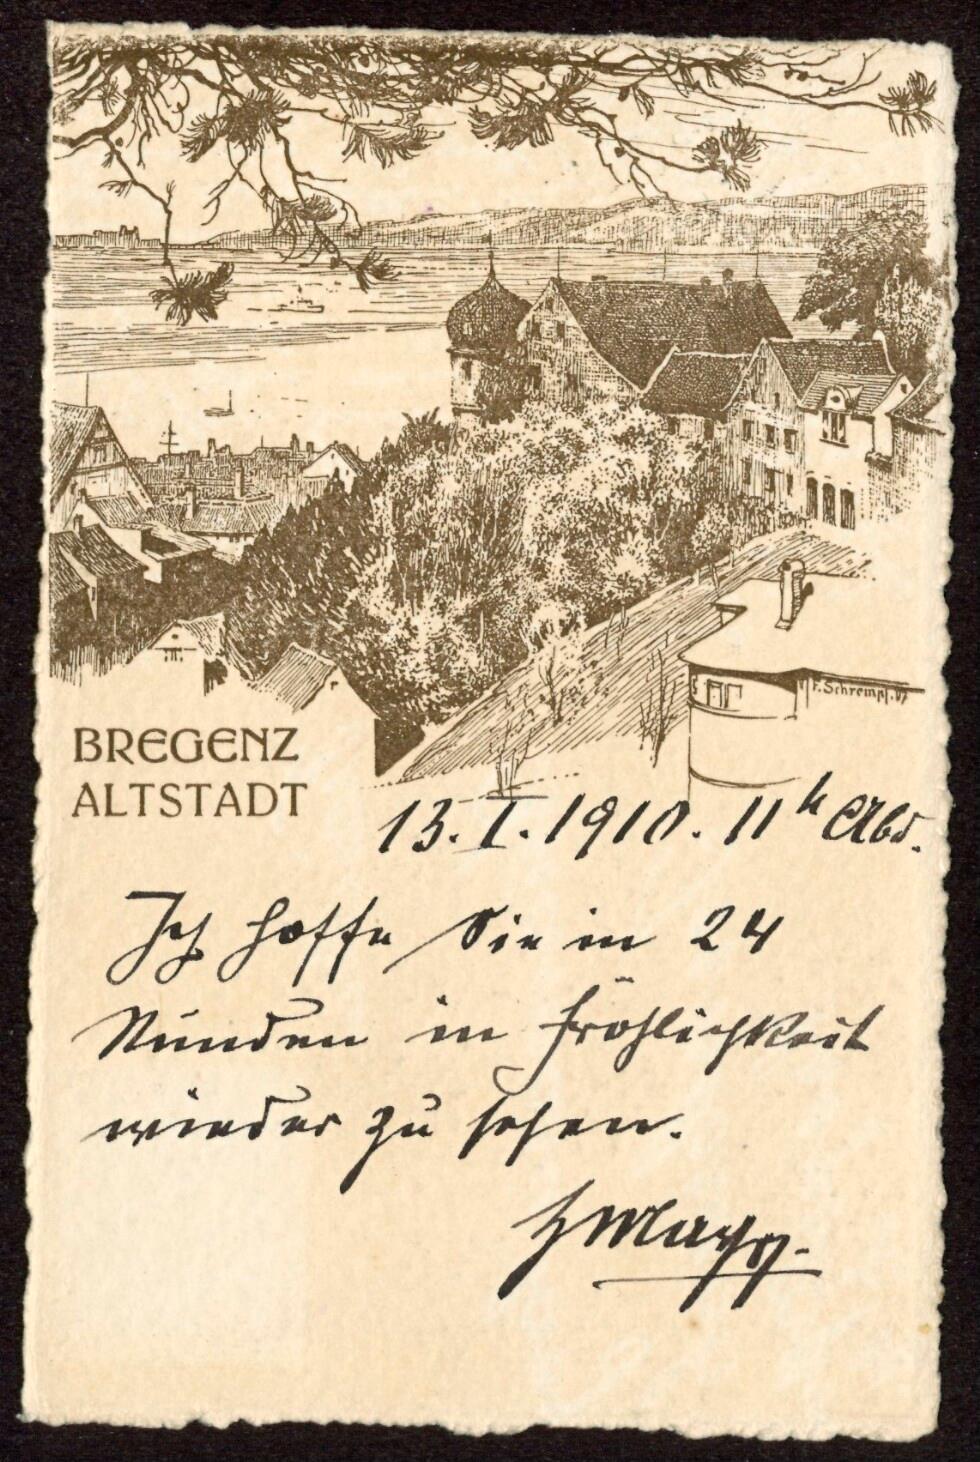 F. Schrempf. 07
BREGENZ
ALTSTADT
13. I. 1910. 11h Abd.
Ich hoffe Sie in 24
Stunden in Fröhlichkeit
wieder zu sehen.